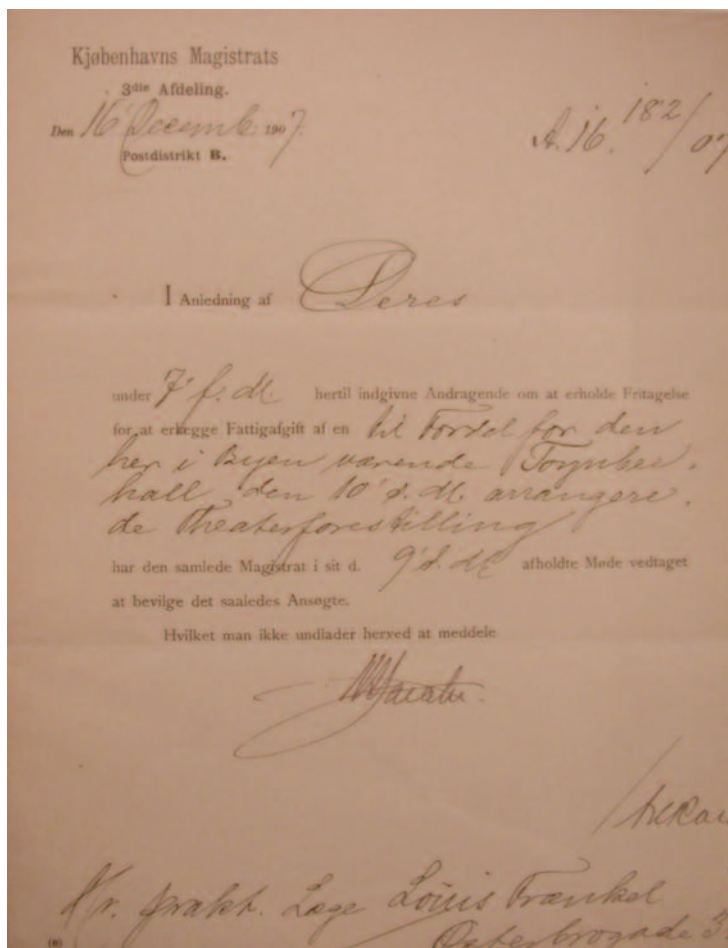 Kjøbenhavns Magistrats
3die Afdeling.
Den 16' Decemb. 1907.
Postdistrikt B.
A. 16. 182/07
I Anledning af Deres
under 7' f. M. hertil indgivne Andragende om at erholde Fritagelse
for at erlægge Fattigafgift af en til Fordel for den
her i Byen værende Toynbee-
hall den 10' d. M. arrangere-
de Theaterforestilling
har den samlede Magistrat i sit d. 9' d. M. afholdte Møde vedtaget
at bevilge det saaledes Ansøgte.
Hvilket man ikke undlader herved at meddele
Hr. prakt. Læge Louis Frænkel
Østerbrogade